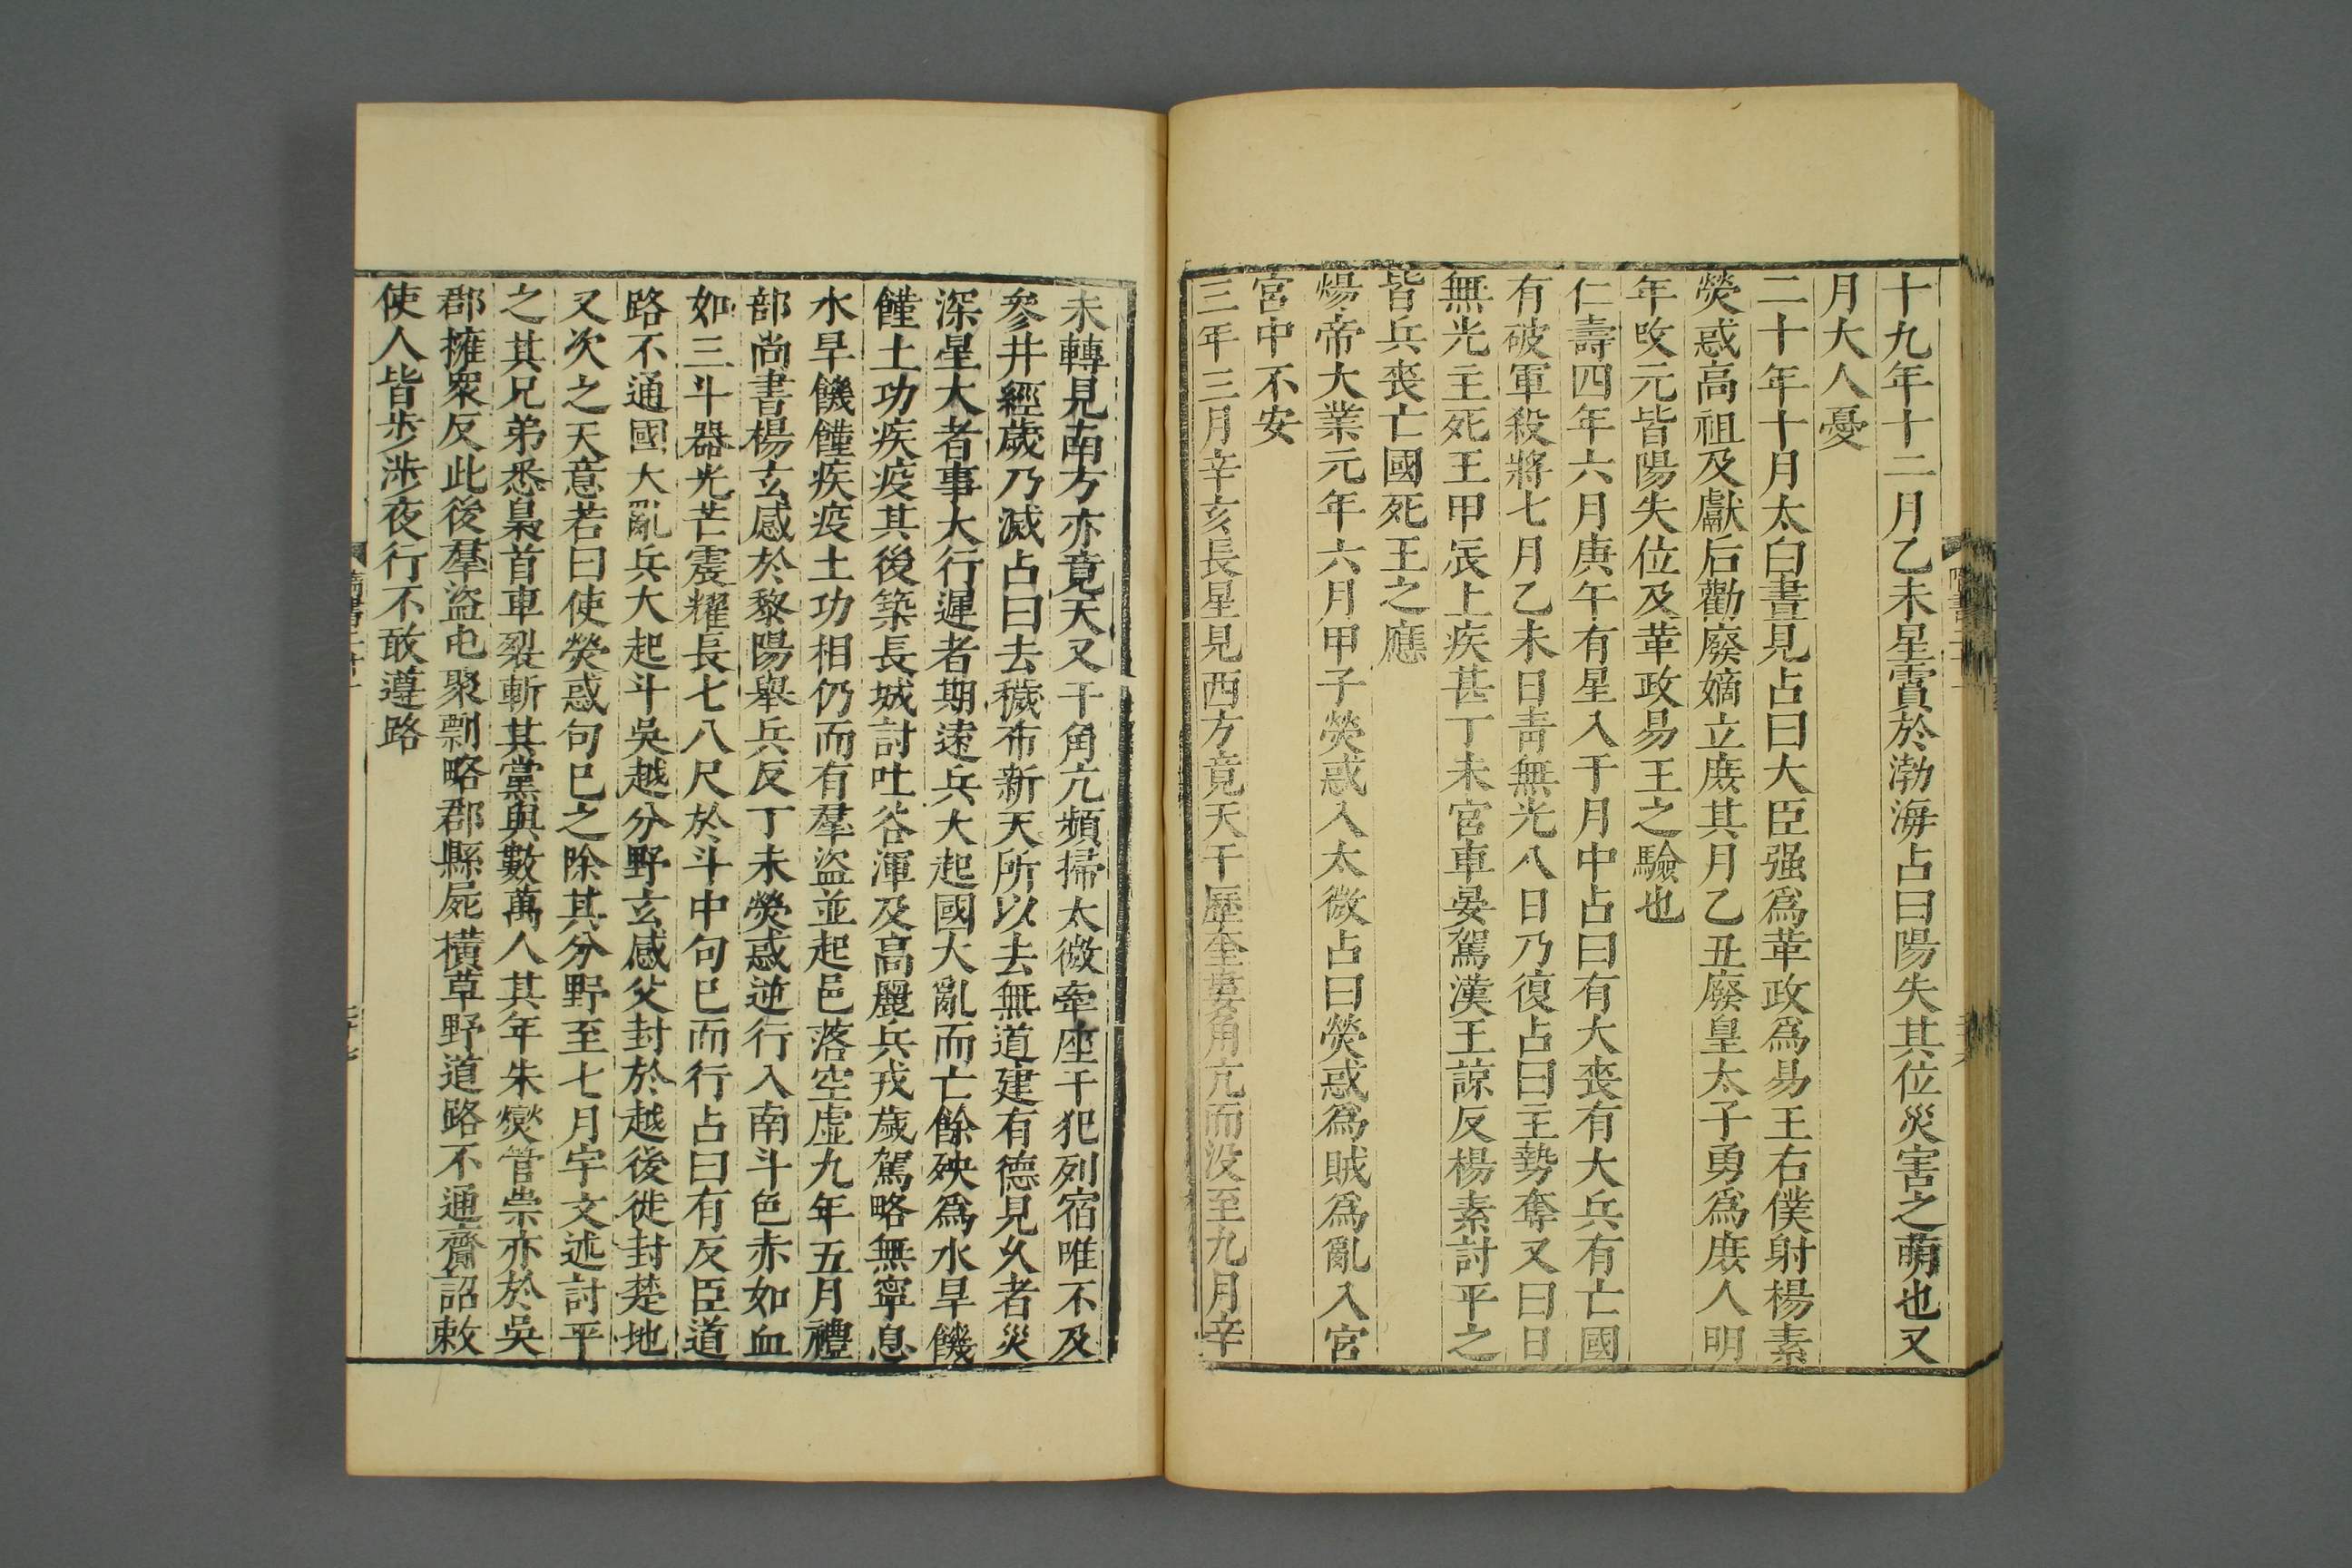 十九年十二月乙未星霣於渤海占曰陽失其位災害之萌也又
月大人憂
二十年十月太白晝見占曰大臣强爲革政爲易王右僕射楊素
熒惑高祖及獻后勸廢嫡立庶其月乙丑廢皇太子勇爲庶人明
年攺元皆陽失位及革政易王之驗也
仁壽四年六月庚午有星入于月中占曰有大喪有大兵有亡國
有破軍殺將七月乙未日靑無光八日乃復占曰主勢奪又曰日
無光主死王甲辰上疾甚丁未宮車晏駕漢王諒反楊素討平之
皆兵喪亡國死王之應
煬帝大業元年六月甲子熒惑入太微占曰熒惑爲賊爲亂入宮
宮中不安
三年三月辛亥長星見西方竟天干歷奎婁角亢而没至九月辛
未轉見南方亦竟天又干角亢頻掃太微帝座干犯列宿唯不及
參井經歲乃滅占曰去穢布新天所以去無道建有德見久者災
深星大者事大行遲者期遠兵大起國大亂而亡餘殃爲水旱饑
饉土功疾疫其後築長城討吐谷渾及高麗兵戎歲駕略無寧息
水旱饑饉疾疫土功相仍而有羣盜並起邑落空虛九年五月禮
部尚書楊玄感於黎陽舉兵反丁未熒惑逆行入南斗色赤如血
如三斗器光芒震耀長七八尺於斗中句巳而行占曰有反臣道
路不通國大亂兵大起斗吳越分野玄感父封於越後徙封楚地
又次之天意若曰使熒惑句巳之除其分野至七月宇文述討平
之其兄弟悉梟首車裂斬其黨與數萬人其年朱燮管崇亦於吳
郡擁衆反此後羣盜屯聚剽略郡縣屍橫草野道路不通齎詔敕
使人皆步涉夜行不敢遵路